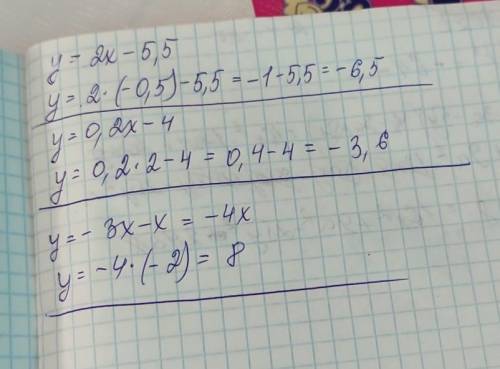 y = 2x - 5,5
y = 2 · (-0,5) - 5,5 = -1 - 5,5 = -6,5
y = 0,2x - 4
y = 0,2 · 2 - 4 = 0,4 - 4 = -3,6
y = -3x - x = -4x
y = -4 · (-2) = 8